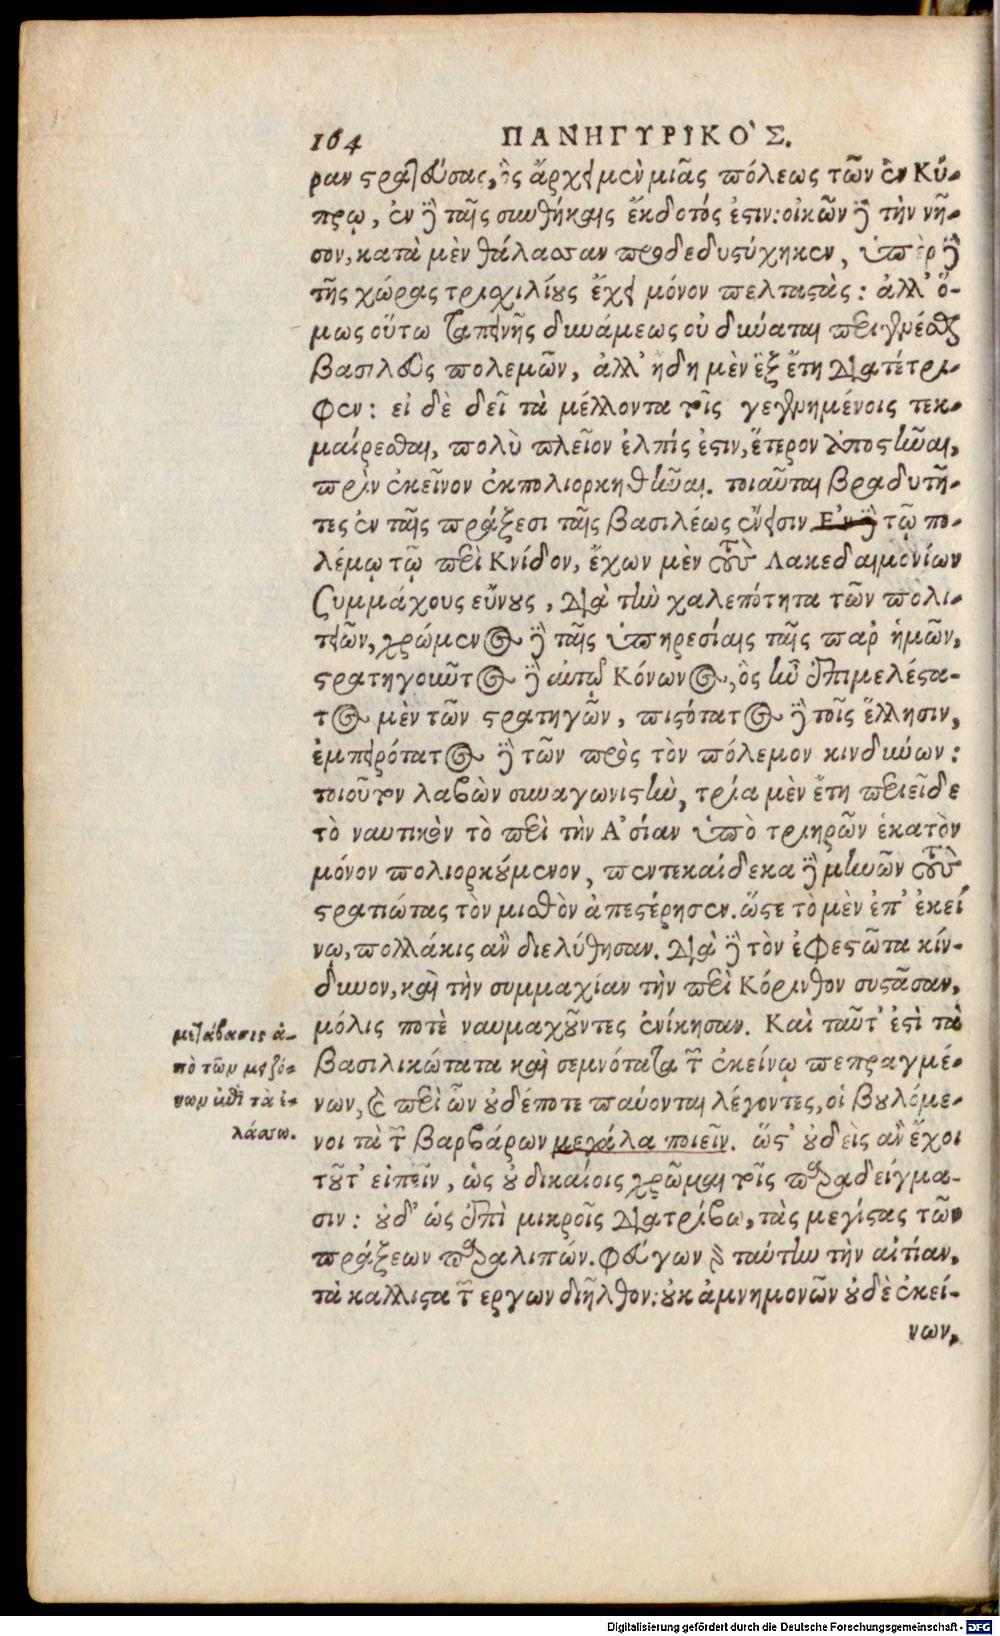 164 ΠΑΝΗΓΥΡΙΚΟ'Σ.
ραν στρατεύσας, ὃς ἄρχει μὲν μιᾶς πόλεως τῶν ἐν Κύ-
πρῳ, ἐν δὲ ταῖς συνθήκαις ἔκδοτός ἐστιν: οἰκῶν δὲ τὴν νῆ-
σον, κατὰ μὲν θάλασσαν προδεδυστύχηκεν, ὑπὲρ δὲ
τῆς χώρας τρισχιλίους ἔχει μόνον πελταστὰς: ἀλλ' ὅ-
μως οὕτω ταπεινῆς δυνάμεως οὐ δύναται περιγενέσθαι
βασιλεὺς πολεμῶν, ἀλλ' ἤδη μὲν ἓξ ἔτη διατέτρι-
φεν: εἰ δὲ δεῖ τὰ μέλλοντα τοῖς γεγενημένοις τεκ-
μαίρεσθαι, πολὺ πλεῖον ἐλπίς ἐστιν, ἕτερον ἀποστῆναι,
πρὶν ἐκεῖνον ἐκπολιορκηθῆναι. τοιαῦται βραδυτῆ-
τες ἐν ταῖς πράξεσι ταῖς βασιλέως ἔνεισιν Ε'ν δὲ τῷ πο-
λέμῳ τῷ περὶ Κνίδον, ἔχων μὲν τοὺς Λακεδαιμονίων
συμμάχους εὔνους, διὰ τὴν χαλεπότητα τῶν πολι-
τειῶν, χρώμενος δὲ ταῖς ὑπηρεσίαις ταῖς παρ' ἡμῶν,
στρατηγοῦντος δὲ αὐτῷ Κόνωνος, ὃς ἦν ἐπιμελέστα-
τος μὲν τῶν στρατηγῶν, πιστότατος δὲ τοῖς ἕλλησιν,
ἐμπειρότατος δὲ τῶν πρὸς τὸν πόλεμον κινδύνων:
τοιοῦτον λαβὼν συναγωνιστὴν, τρία μὲν ἔτη περιεῖδε
τὸ ναυτικὸν τὸ περὶ τὴν Α'σίαν ὑπὸ τριηρῶν ἑκατὸν
μόνον πολιορκούμενον, πεντεκαίδεκα δὲ μηνῶν τοὺς
στρατιώτας τὸν μισθὸν ἀπεστέρησεν. ὥστε τὸ μὲν ἐπ' ἐκεί
νῳ, πολλάκις ἂν διελύθησαν. διὰ δὲ τὸν ἐφεστῶτα κίν-
δυνον, καὶ τὴν συμμαχίαν τὴν περὶ Κόρινθον συστᾶσαν,
μόλις ποτὲ ναυμαχοῦντες ἐνίκησαν. Καὶ ταῦτ' ἐστὶ τὰ
βασιλικώτατα καὶ σεμνότατα τῶν ἐκείνῳ πεπραγμέ-
νων, καὶ περὶ ὧν οὐδέποτε παύονται λέγοντες, οἱ βουλόμε-
νοι τὰ τῶν βαρβάρων μεγάλα ποιεῖν. ὥστ' οὐδεὶς ἂν ἔχοι
τοῦτ' εἰπεῖν, ὡς οὐ δικαίοις χρῶμαι τοῖς παραδείγμα-
σιν: οὐδ' ὡς ἐπὶ μικροῖς διατρίβω, τὰς μεγίστας τῶν
πράξεων παραλιπών. φεύγων γὰρ ταύτην τὴν αἰτίαν,
τὰ κάλλιστα τῶν εργων διῆλθον: οὐκ ἀμνημονῶν οὐδὲ ἐκεί-
νων,
μετάβασις ἀ-
πὸ τῶν μειζό-
νων ἐπὶ τὰ ἐ-
λάσσω.
Digitalisierung gefördert durch die Deutsche Forschungsgemeinschaft - DFG